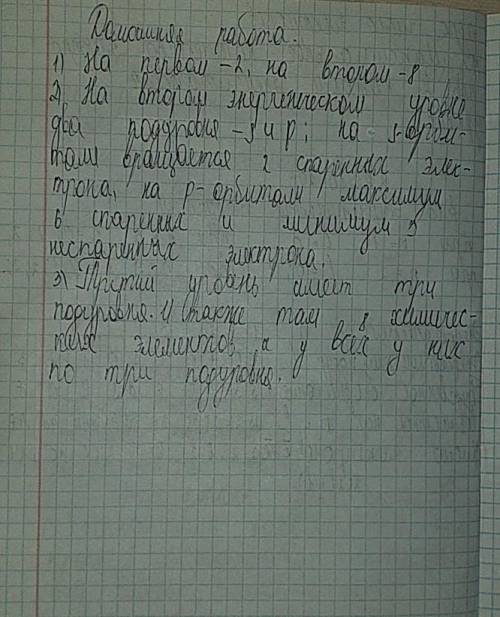 Домашняя работа.
1) На первом -2, на втором -8
2) На втором энергетическом уровне
два подуровня - s и p; на s-орби-
тали вращается 2 спаренных элек-
трона, на p-орбитали максимум
6 спаренных и минимум 3
неспаренных электрона.
3) Третий уровень имеет три
подуровня. И также там 8 химичес-
ких элементов, и у всех у них
по три подуровня.